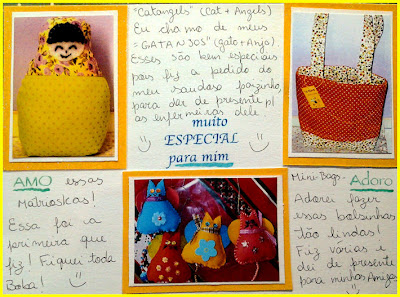 "Catangels" (Cat + Angels)
Eu chamo de meus
= "GATANJOS" (gato + Anjo).
Esses são bem especiais
pois fiz a pedido do
meu saudoso paizinho,
para dar de presente p/
as enfermeiras dele
muito
ESPECIAL
para mim
AMO essas
Matrioskas!
Essa foi a
primeira que
fiz! Fiquei toda
Boba!
Mini-Bags - Adoro
Adorei fazer
essas bolsinhas
tão lindas!
Fiz varias e
dei de presente
para minhas Amigas